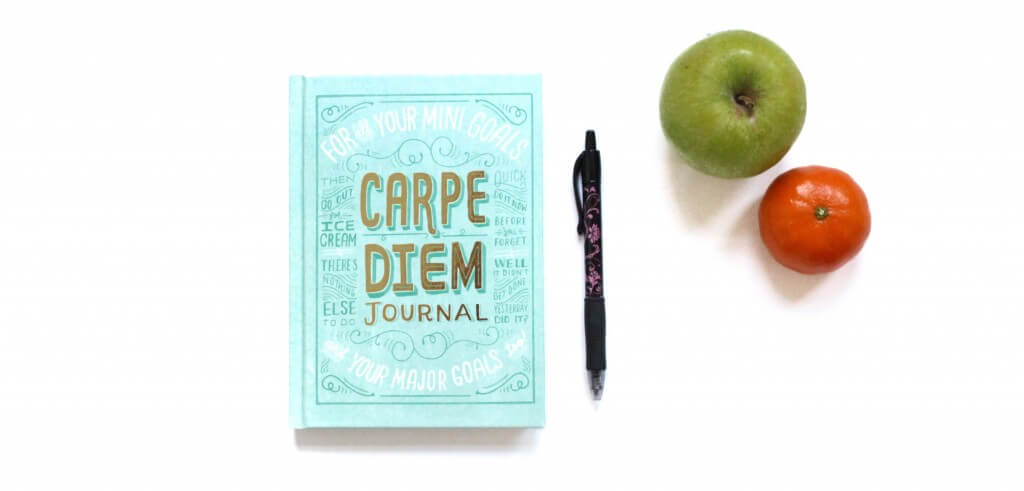 FOR all YOUR MINI GOALS
CARPE
DIEM
JOURNAL
THEN
GO OUT
for
ICE
CREAM
THERE'S
NOTHING
ELSE
TO DO
QUICK
DO IT NOW
BEFORE
you
FORGET
WELL
IT DIDN'T
GET DONE
YESTERDAY
DID IT?
and YOUR MAJOR GOALS too!